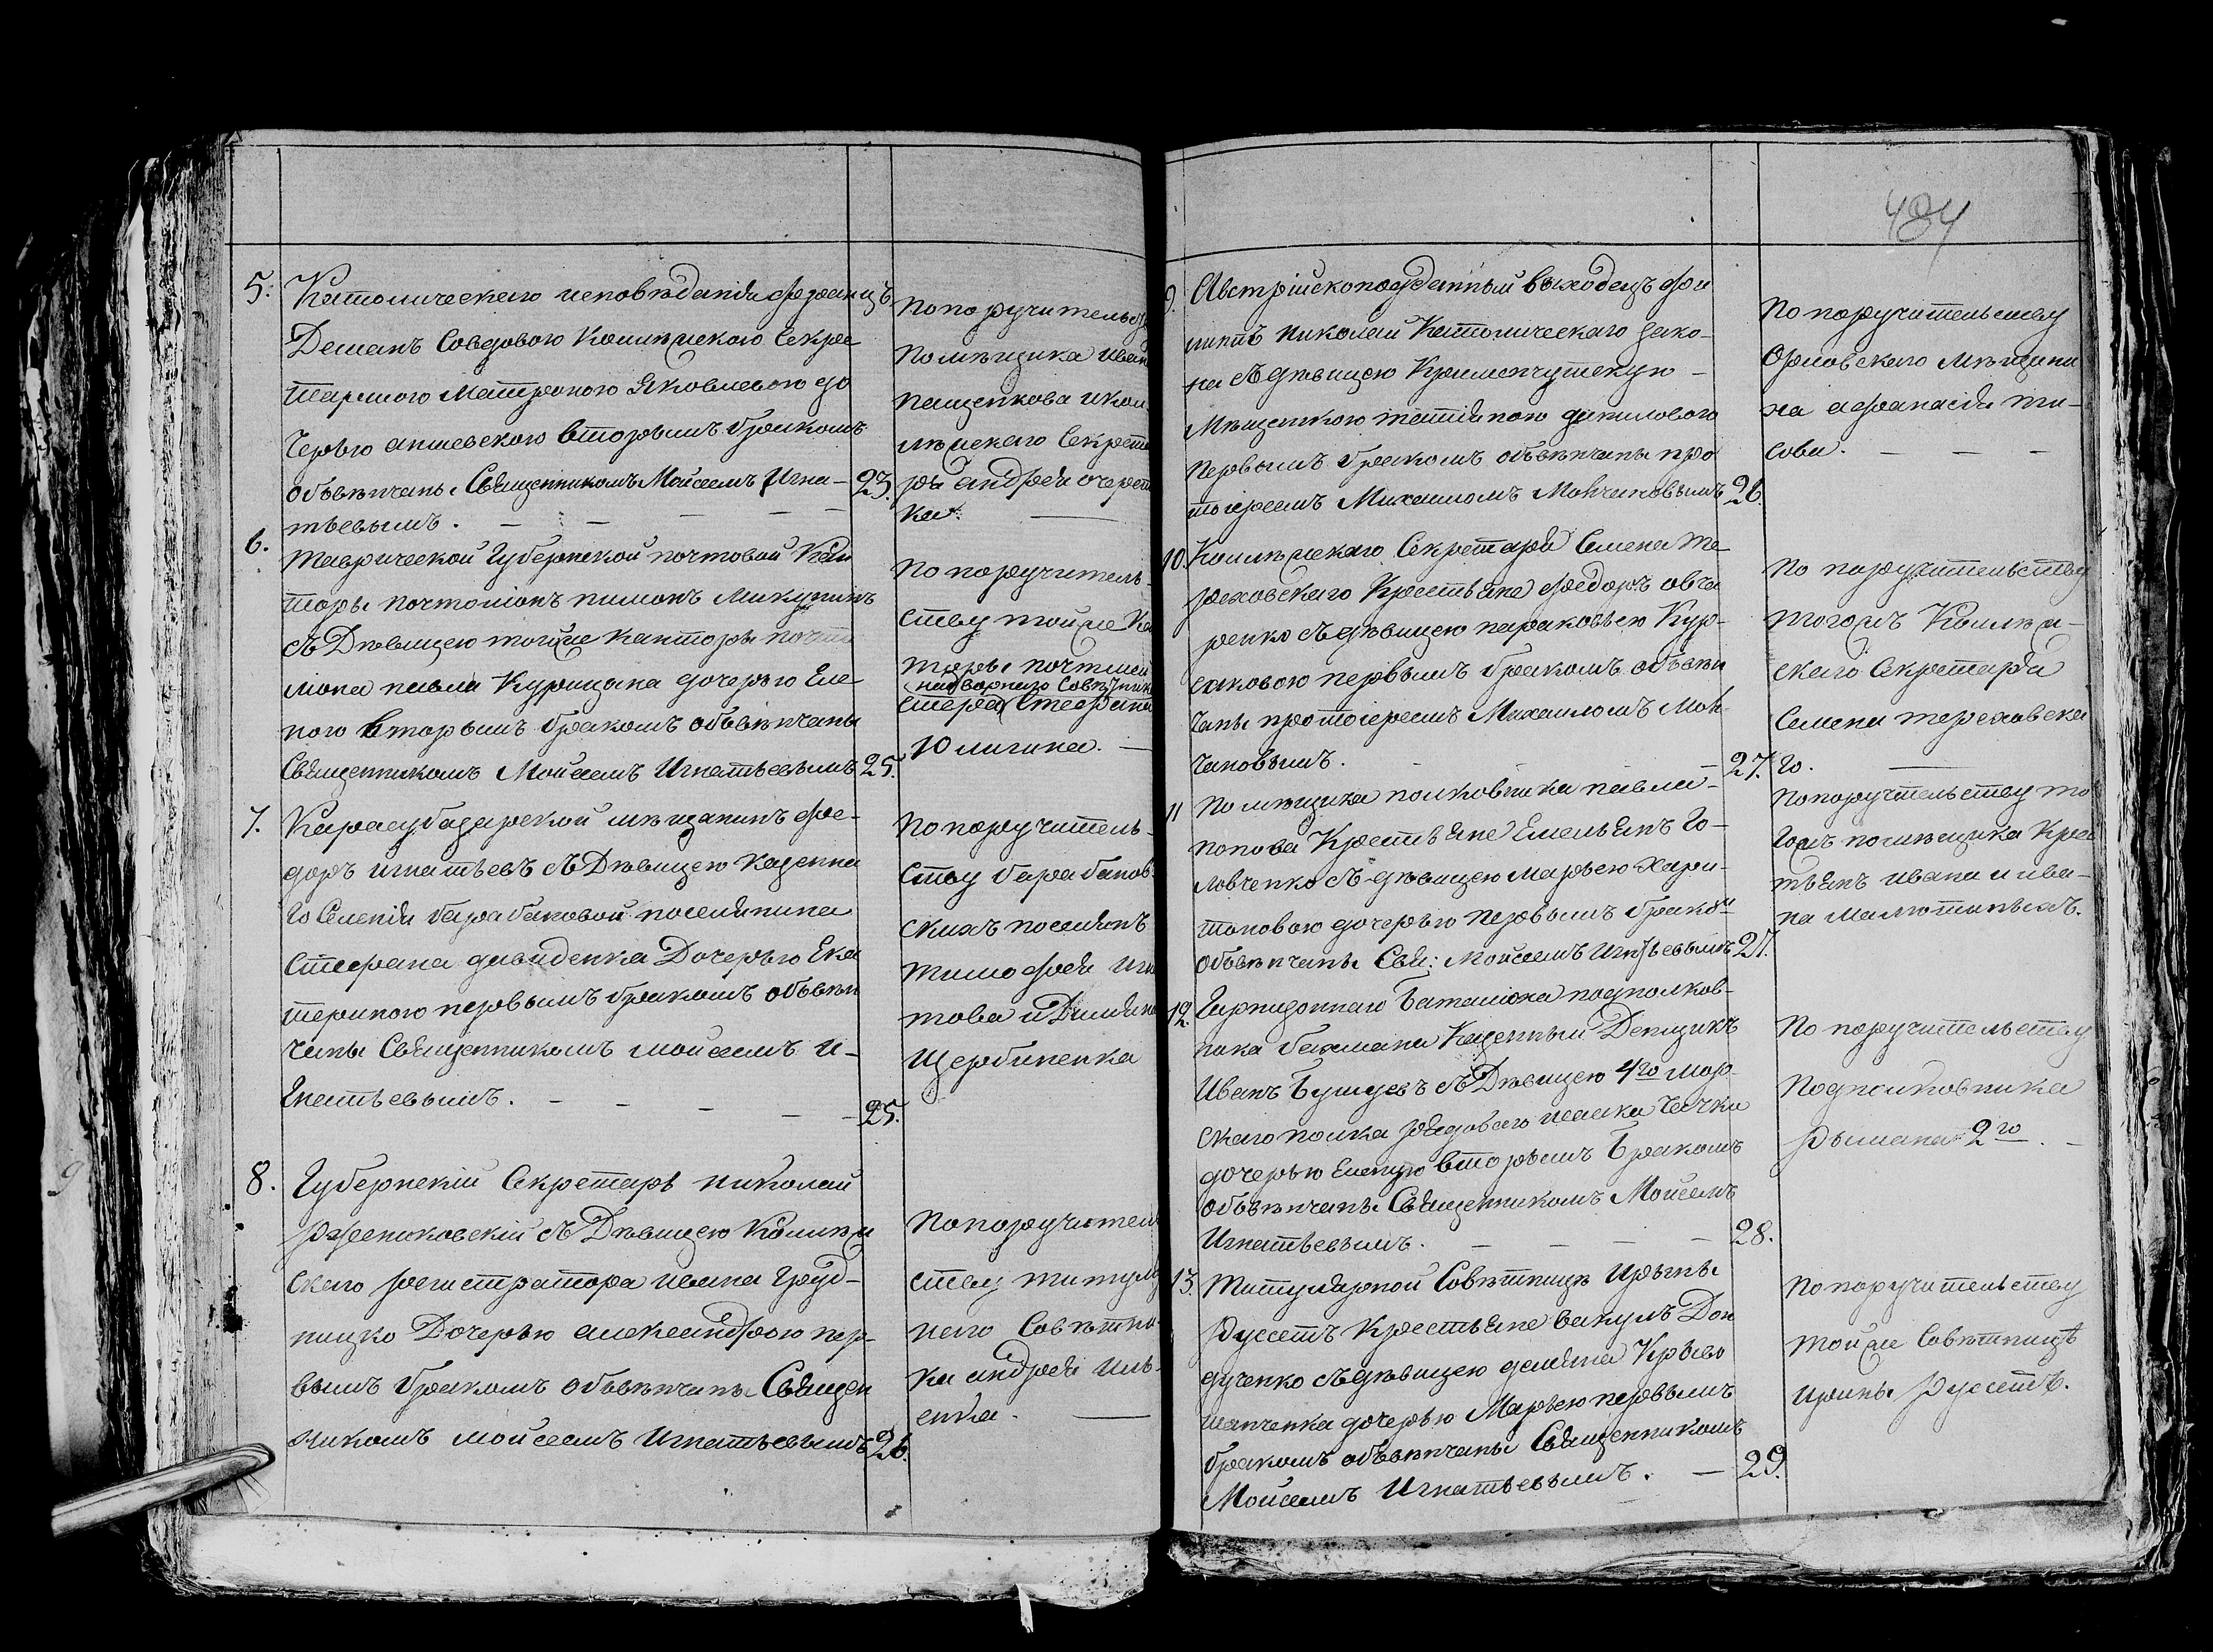 484
5. Католическаго исповѣданія францъ
Деманъ Совдовою Колѣжскою Секре
таршою Матроною Яковлевою до
черью вторымъ бракомъ
объвѣнчаны Священникомъ Моисеемъ Игна- 23.
тьевымъ.
По поручительст
Помѣщика Иван
пащенкова и кол
лѣжскаго Секрет
ря андрея очерет
ка.
6. Таврической Губернской почтовой Кан
торы почтоліонъ пимонъ Микулинъ
съ Дѣвицею тойже канторы почта
ліона павла Курицына дочерью Еле
ною вторымъ бракомъ объвѣнчаны
Священникомъ Мойсеемъ Игнатьевымъ 25.
По поручитель-
ству тойже Ка
торы почтмей
надворнаго Совѣтник
стера Стефана
Юлигина.
7. Карасубазарской мѣщанинъ фе-
доръ игнатьевъ съ Дѣвицею казенна
го Селенія барабановой поселянина
Стефана давиденка Дочерью Ека
териною первымъ бракомъ объвѣн
чаны Священникомъ мойсеемъ И-
гнатьевымъ. 25.
По поручитель-
ству барабанов-
скихъ поселянъ
тимофея Игн
това и Демьяна
Щербиненка
8. Губернскій Секретарь николай
Ржепиковскій съ Дѣвицею Колѣж
скаго регистратора ивана Груд-
ницко Дочерью александрою пер-
вымъ бракомъ объвѣнчаны Священ
никомъ мойсеемъ Игнатьевымъ 26.
По поручител
ству титуля
наго Совѣтни
ка андрея иль-
енка.
9. Австрійскоподданный выходецъ фи
липъ николаи Католическаго зако-
на съ дѣвицею Кременчугскую
Мѣщенкою татіяною даниловою
первымъ бракомъ объвѣнчаны про
тоіереемъ Михаиломъ Мончиновымъ 26.
По поручительству
Орловскаго мѣщани
на афанасія ти-
сова.
10. Колѣжскаго Секретаря Семена те
реховскаго Крестьяне федоръ овча
ренко съ дѣвицею параковьею Кур-
саковою первымъ бракомъ объвѣн
чаны протоіереемъ Михаиломъ Мон
чиновымъ. 27.
По поручительству
тогожъ Колѣж-
скаго Секретаря
Семена тереховска
го.
11 Помѣщика полковника павла
попова Крестьяне Емельянъ Го-
ловченко съ дѣвицею Марьею Хари-
тоновою дочерью первымъ бракомъ
объвѣнчаны Свя: Мойсеемъ Игнтьевымъ 27.
По поручительству то
гожъ помѣщика Крес
тьянъ ивана и ива-
на Малютиныхъ.
12. Гарнизоннаго баталіона подполков-
ника бахмана Казенный Денщикъ
Иванъ Бушуевъ съ Дѣвицею 4го мор-
скаго полка рядоваго исаака чечки
дочерью Еленую вторымъ бракомъ
объвѣнчаны Священникомъ Мойсемъ
Игнатьевымъ. 28.
По поручительству
Подполковника
Рымана 2го.
13. Титулярной Совѣтницы Ирыны
Руссетъ Крестьяне вакулъ Дон
дученко съ дѣвицею демьяна Крыво
шапченка дочерью Марьею первымъ
бракомъ объвѣнчаны Священникомъ
Мойсеемъ Игнатьевымъ. 29.
По поручительству
тойже Совѣтницѣ
ирины Руссетъ.